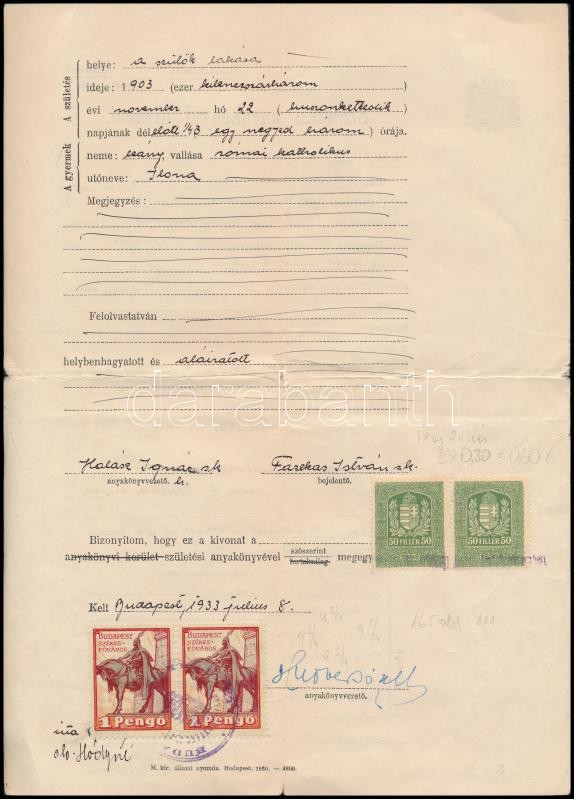 A születés
helye: a szülők lakása
ideje: 1903 (ezer kilencszázhárom )
évi november hó 22 ( huszonkettedik )
napjának délelőtt 1/43 egy negyed három ) órája.
A gyermek
neme: leány, vallása római katholikus
utóneve: Ilona
Megjegyzés:
Felolvastatván
helybenhagyatott és aláíratott
darabanth
1 x új 2
2 x 0,30 = 0,60 €
Halász Ignác s.k. Fazekas István s.k.
anyakönyvvezető h. bejelentő.
50 FILLÉR 50 50 FILLÉR 50
Bizonyitom, hogy ez a kivonat a
anyakönyvi kerület születési anyakönyvével szószerint megegy
tartalmilag
Kelt Budapest, 1933 július 8.
9 3/4
165 old 111
BUDAPEST SZÉKES-FŐVÁROS BUDAPEST SZÉKES-FŐVÁROS
1 Pengő 1 Pengő
BUDA
anyakönyvvezető.
írta
M. kir. állami nyomda. Budapest, 1930. — 4800.